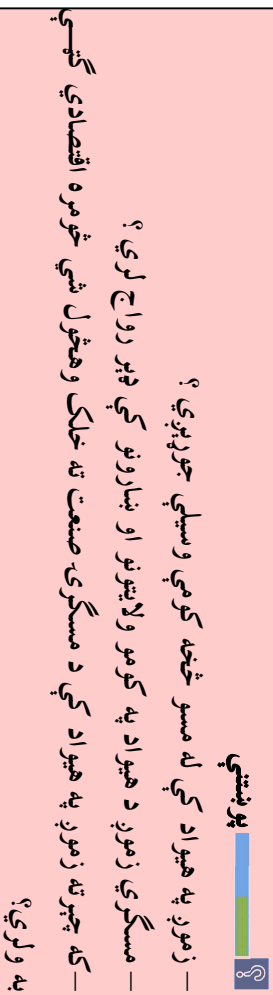 پوښتنې
– زموږ په هیواد کې له مسو څخه کومې وسیلې جوړیږي؟
– مسګري زموږ د هیواد په کومو ولایتونو او ښارونو کې ډېر رواج لري؟
– که چېرته زموږ په هیواد کې د مسګرۍ صنعت ته خلک وهڅول شي څومره اقتصادي ګټې
به ولري؟